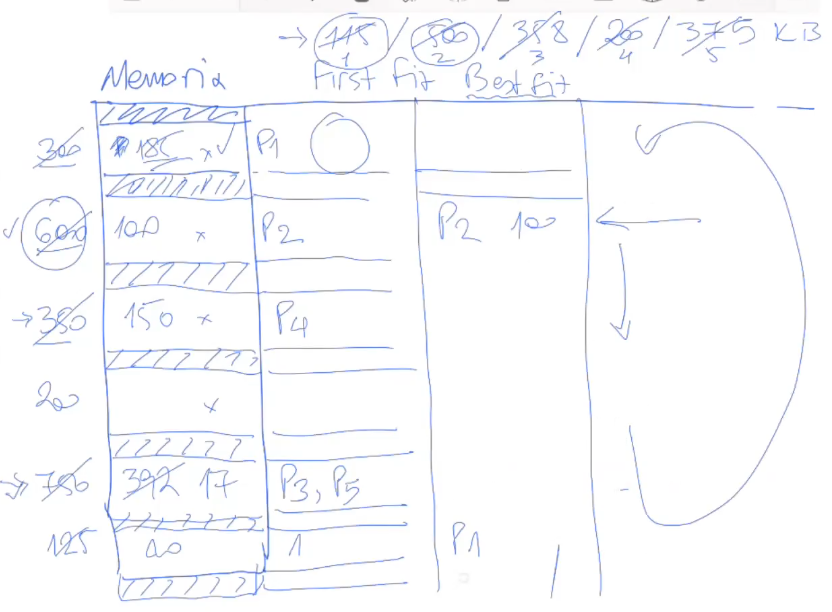 → 115 / 500 / 358 / 200 / 375 KB
1 2 3 4 5
Memoria First Fit Best fit
300 185 x ✓ P1
✓ 600 100 x P2 P2 100
→ 350 150 x P4
200 x
→ 750 392 17 P3, P5
125 10 1 P1